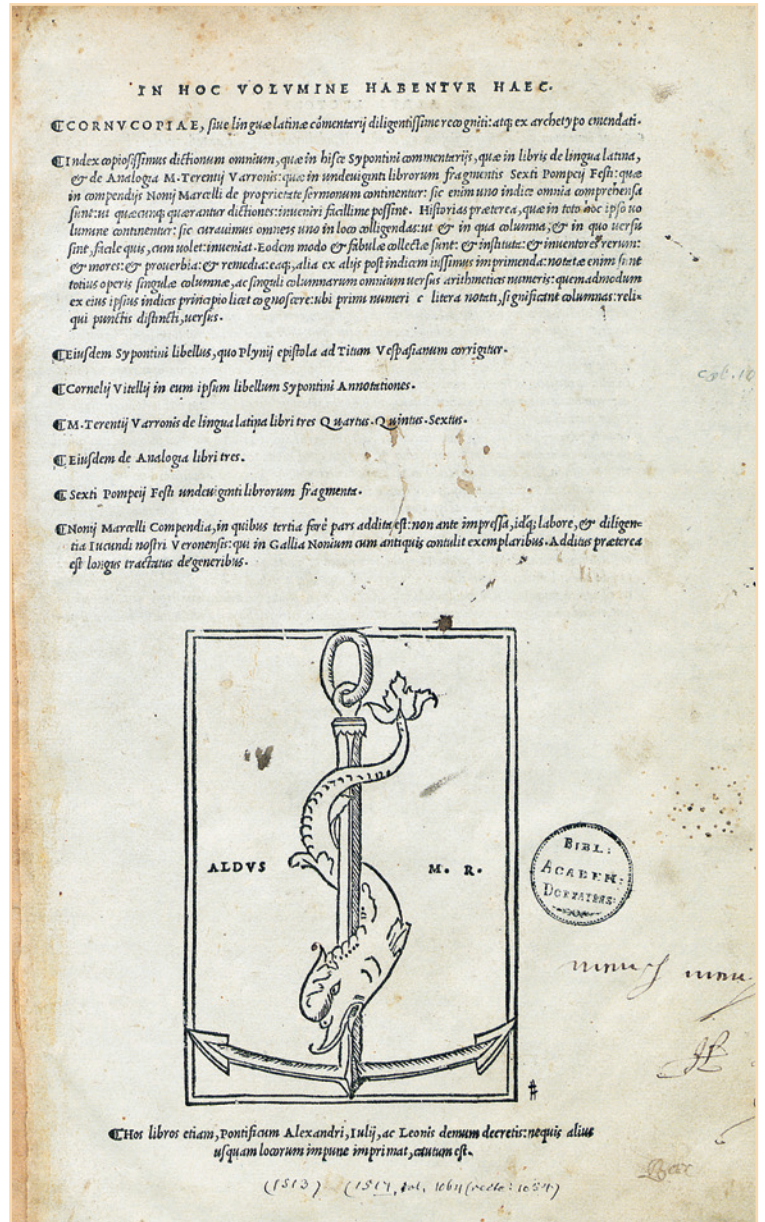 IN HOC VOLVMINE HABENTVR HAEC.
⁋CORNVCOPIAE, ſiue linguæ latinæ cõmentarij diligentiſſime recogniti: atq; ex archetypo emendati.
⁋Index copioſiſſimus dictionum omnium, quæ in hiſce Sypontini commentarijs, quæ in libris de lingua latina,
& de Analogia M. Terentij Varronis: quæ in undeuiginti librorum fragmentis Sexti Pompeij Feſti: quæ
in compendijs Nonij Marcelli de proprietate ſermonum continentur: ſic enim uno indice omnia comprehenſa
ſunt: ut quæcunq; quærantur dictiones: inueniri facillime poſſint. Hiſtorias præterea, quæ in toto hoc ipſo uo
lumine continentur: ſic curauimus omneis uno in loco colligendas: ut & in qua columna, & in quo uerſu
ſint, facile quis, cum uolet: inueniat. Eodem modo & fabulæ collectæ ſunt: & inſtituta: & inuentores rerum:
& mores: & prouerbia: & remedia: eaq; alia ex alijs poſt indicem iuſſimus imprimenda: notatæ enim ſunt
totius operis ſingulæ columnæ, ac ſinguli columnarum omnium uerſus arithmeticis numeris: quemadmodum
ex eius ipſius indicis principio licet cognoſcere: ubi primi numeri c litera notati, ſignificant columnas: reli=
qui punctis diſtincti, uerſus.
⁋Eiuſdem Sypontini libellus, quo Plynij epiſtola ad Titum Veſpaſianum corrigitur.
⁋Cornelij Vitellij in eum ipſum libellum Sypontini Annotationes.
⁋M. Terentij Varronis de lingua latina libri tres Quartus. Quintus. Sextus.
⁋Eiuſdem de Analogia libri tres.
⁋Sexti Pompeij Feſti undeuiginti librorum fragmenta.
⁋Nonij Marcelli Compendia, in quibus tertia ferè pars addita eſt: non ante impreſſa, idq; labore, & diligen=
tia Iucundi noſtri Veronenſis: qui in Gallia Nonium cum antiquis contulit exemplaribus. Additus præterea
eſt longus tractatus de generibus.
ALDVS M. R.
BIBL:
ACADEM:
DORPATENS:
⁋Hos libros etiam, Pontificum Alexandri, Iulij, ac Leonis demum decretis: nequis alius
uſquam locorum impune imprimat, cautum eſt.
(1513) (1517,